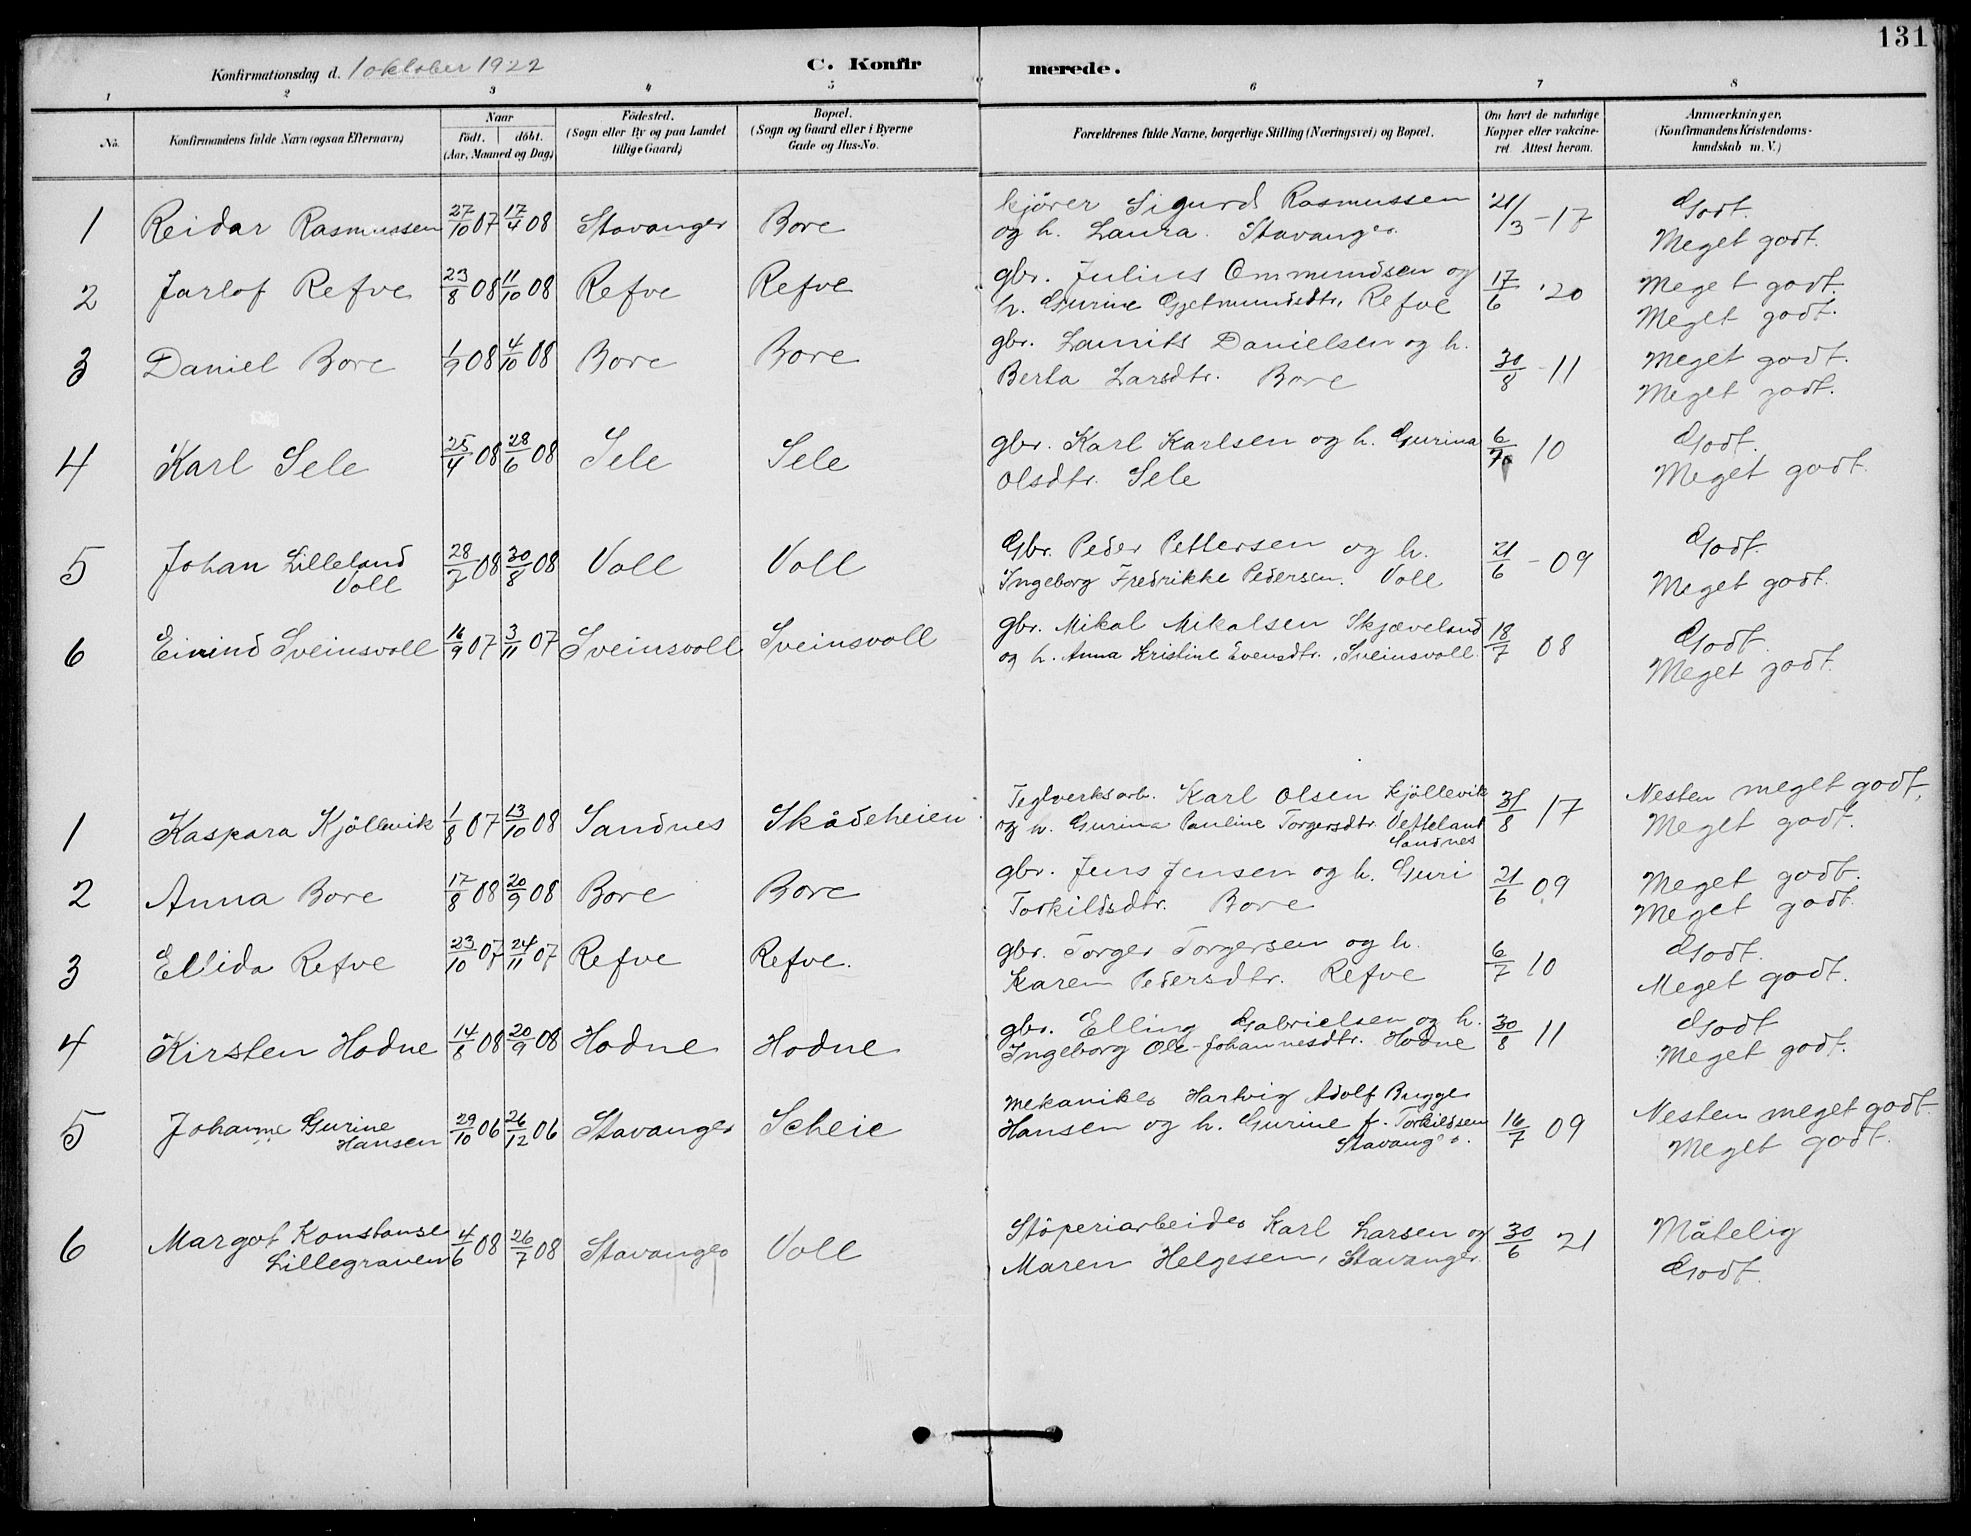 131
Konfirmationsdag d. 1 oktober 1922 C. Konfir merede.
1 2 3 4 5 6 7 8
No. Konfirmandens fulde Navn (ogsaa Efternavn) Naar födt. döbt. (Aar, Maaned og Dag) Födested. (Sogn eller By og paa Landet tillige Gaard) Bopæl. (Sogn og Gaard eller i Byerne Gade og Hus-No. Forældrenes fulde Navne, borgerlige Stilling (Næringsvei) og Bopæl. Om havt de naturlige Kopper eller vakcineret Attest herom. Anmærkninger. (Konfirmandens Kristendomskundskab m. V.)
1 Reidar Rasmussen 27/10 07 17/4 08 Stavanger Bore kjörer Sigurd Rasmussen 21/3 - 17 Godt.
og h. Laura. Stavanger. Meget godt.
2 Jarlof Refve 23/8 08 11/10 08 Refve Refve gbr. Julius Ommundsen og 17/6 '20 Meget godt.
h. Gurine Gjetmundsdtr, Refve Meget godt.
3 Daniel Bore 1/9 08 4/10 08 Bore Bore gbr. Laurits Danielsen og h. 30/8 - 11 Meget godt.
Berta Larsdtr. Bore Meget godt.
4 Karl Sele 25/4 08 28/6 08 Sele Sele gbr. Karl Karlsen og h. Gurina 6/7 10 Godt.
Olsdtr. Sele Meget godt.
5 Johan Lilleland 28/7 08 30/8 08 Voll Voll Gbr. Peder Pettersen og h. 21/6 - 09 Godt.
Voll Ingeborg Fredrikke Pedersen. Voll Meget godt.
6 Eivind Sveinsvoll 16/9 07 3/11 07 Sveinsvoll Sveinsvoll gbr. Mikal Mikalsen Skjæveland 18/7 08 Godt.
og h. Anna Kristine Evensdtr., Sveinsvoll. Meget godt.
1 Kaspara Kjöllevik 1/8 07 13/10 08 Sandnes Skådeheien Teglverksarb. Karl Olsen Kjöllevik 31/8 17 Nesten meget godt,
og h. Gurina Pauline Torgersdtr. Vefteland Meget godt.
Sandnes
2 Anna Bore 17/8 08 20/9 08 Bore Bore gbr. Jens Jensen og h. Guri 21/6 09 Meget godt.
Torkildsdtr. Bore Meget godt.
3 Ellida Refve 23/10 07 24/11 07 Refve Refve. gbr. Torger Torgersen og h. 6/7 10 Godt.
Karen Pedersdtr. Refve Meget godt.
4 Kirsten Hodne 14/8 08 20/9 08 Hodne Hodne gbr. Elling Gabrielsen og h. 30/8 11 Godt
Ingeborg Ole-Johannesdtr. Hodne Meget godt.
5 Johanne Gurine 29/10 06 26/12 06 Stavanger Scheie Mekaniker Hartvig Adolf Bugge Nesten meget godt.
Hansen Hansen og h. Gurine f. Torkildsen 16/7 09 Meget godt.
Stavanger.
6 Margot Konstanse 4/6 08 26/7 08 Stavanger Voll Stöperiarbeider Karl Larsen og 30/6 21 Måtelig
Lillegraven Maren Helgesen, Stavanger. Godt.